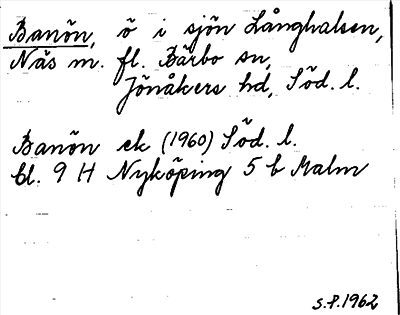 Banön, ö i sjön Långhalsen,
Näs m. fl. Bärbo sn,
Jönåkers hd, Söd. l.
Banön ek (1960) Söd. l.
bl. 9 H Nyköping 5 b Malm
S.P. 1962